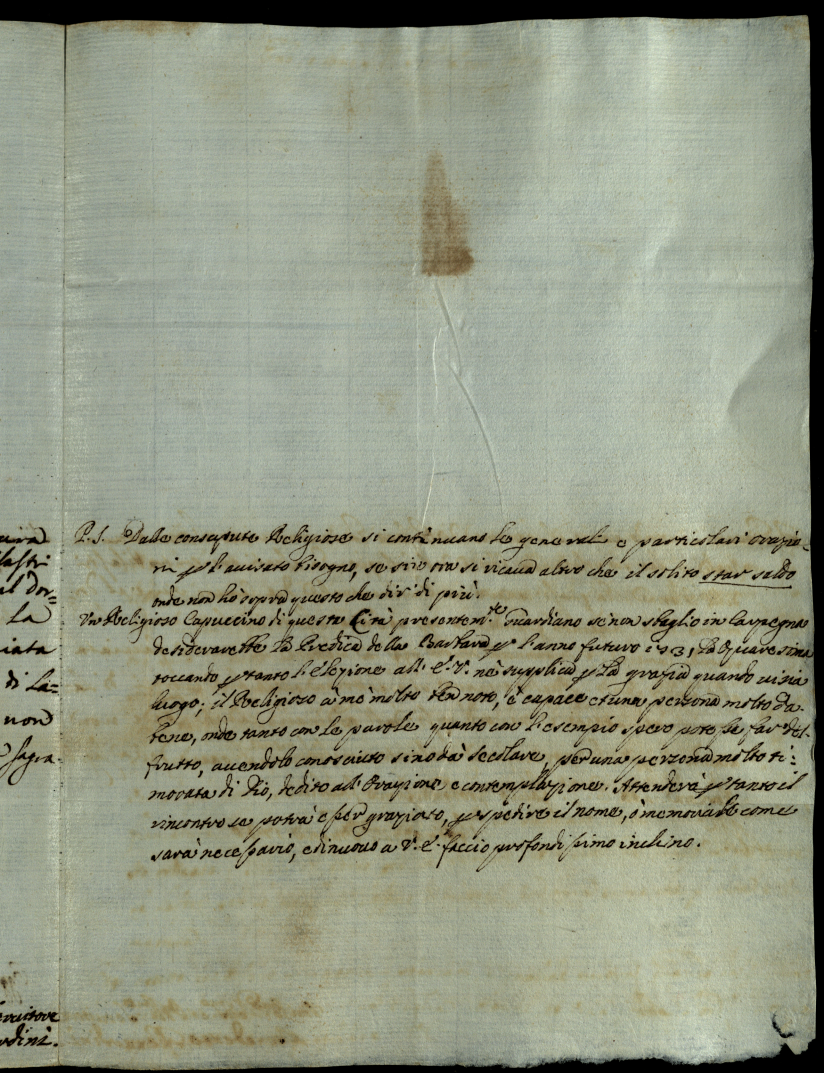 uira
lastri
al dor=
La
iata
di La=
non
sagra-
P. S. Dalle consapute Religiose si continuano le generali e particolari orazio-
ni p l'auisato bisogno, se sin ora si ricaua altro che il solito star saldo
onde non hò sopra questo che dir di più.
Vn Religioso Capuccino di questa Città presentem.te Guardiano se non sbaglio in Carpegna
desiderarebbe la Predica della Bastard p l'anno futuro la Quaresima
toccando p tanto l'elezione all' E. V. nè supplica p la grazia quando ui sia
luogo; il Religioso à mè molto ben noto, è capace et una persona molto da
bene, onde tanto con le parole quanto con l'esempio spero potesse far del
frutto, auendolo conosciuto sino dà secolare, per una persona molto ti=
morata di Dio, dedito all' Orazione e contemplazione. Attenderà p tanto il
rincontro se potrà esser graziato, p spedire il nome, ò memoriale come
sarà necessario, e di nuouo a V. E. faccio profondissimo inchino.
eruitore
rdini.